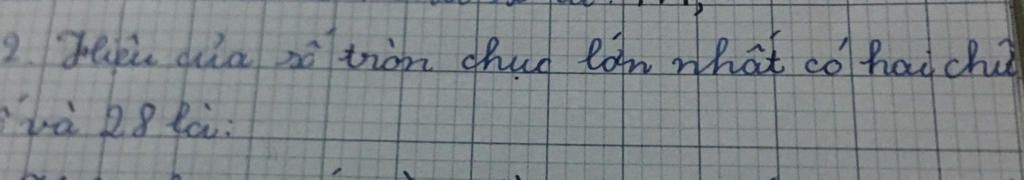 2. Hiệu của số tròn chục lớn nhất có hai chữ
và 28 là: